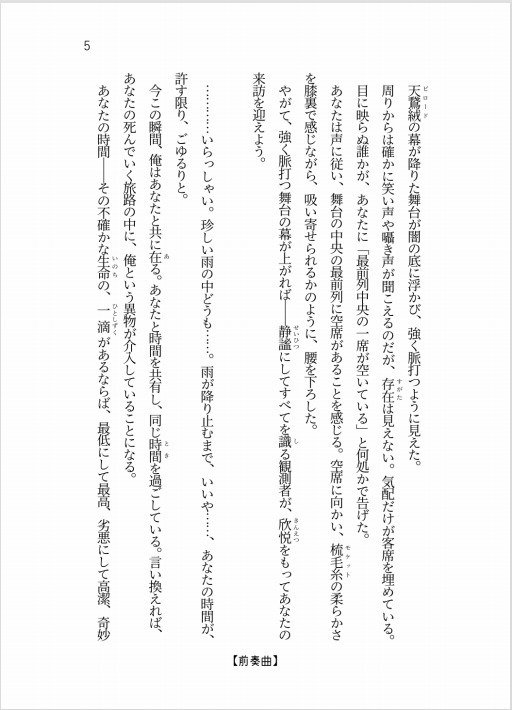 5
天鵞絨の幕が降りた舞台が闇の底に浮かび、強く脈打つように見えた。
周りからは確かに笑い声や囁き声が聞こえるのだが、存在は見えない。気配だけが客席を埋めている。
目に映らぬ誰かが、あなたに「最前列中央の一席が空いている」と何処かで告げた。
あなたは声に従い、舞台の中央の最前列に空席があることを感じる。空席に向かい、梳毛糸の柔らかさ
を膝裏で感じながら、吸い寄せられるかのように、腰を下ろした。
やがて、強く脈打つ舞台の幕が上がれば――静謐にしてすべてを識る観測者が、欣悦をもってあなたの
来訪を迎えよう。
…………いらっしゃい。珍しい雨の中どうも……。雨が降り止むまで、いいや……、あなたの時間が、
許す限り、ごゆるりと。
今この瞬間、俺はあなたと共に在る。あなたと時間を共有し、同じ時間を過ごしている。言い換えれば、
あなたの死んでいく旅路の中に、俺という異物が介入していることになる。
あなたの時間――その不確かな生命の、一滴があるならば、最低にして最高、劣悪にして高潔、奇妙
【前奏曲】